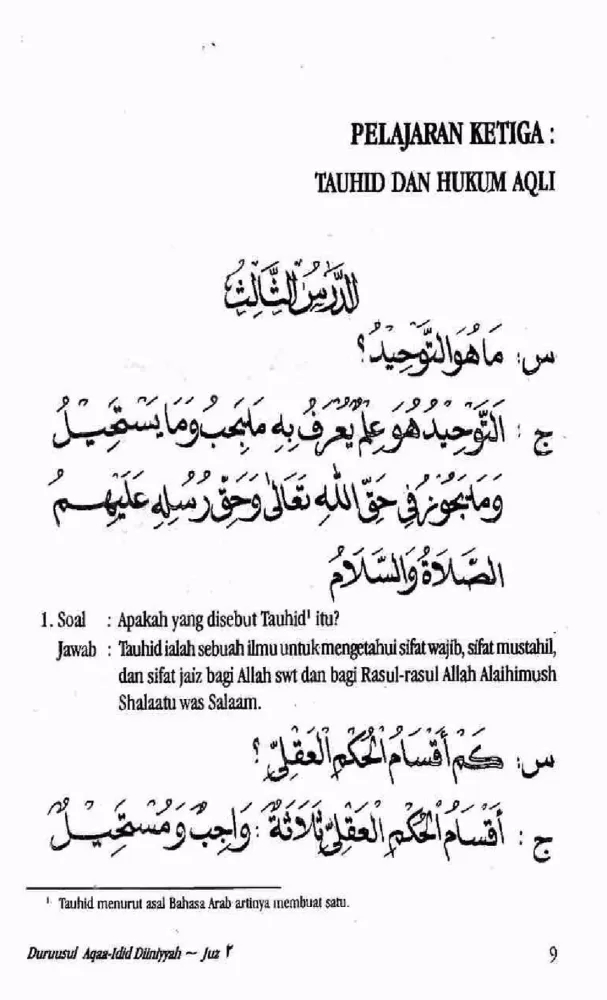 PELAJARAN KETIGA :
TAUHID DAN HUKUM AQLI
الدَّرْسُ الثَّالِثُ
س: مَا هُوَ التَّوْحِيْدُ؟
ج : اَلتَّوْحِيْدُ هُوَ عِلْمٌ يُعْرَفُ بِهِ مَا يَجِبُ وَمَا يَسْتَحِيْلُ
وَمَا يَجُوْزُ فِي حَقِّ اللهِ تَعَالَى وَحَقِّ رُسُلِهِ عَلَيْهِمُ
الصَّلَاةُ وَالسَّلَامُ
1. Soal : Apakah yang disebut Tauhid¹ itu?
Jawab : Tauhid ialah sebuah ilmu untuk mengetahui sifat wajib, sifat mustahil,
dan sifat jaiz bagi Allah swt dan bagi Rasul-rasul Allah Alaihimush
Shalaatu was Salaam.
س: كَمْ أَقْسَامُ الْحُكْمِ الْعَقْلِيِّ ؟
ج : أَقْسَامُ الْحُكْمِ الْعَقْلِيِّ ثَلَاثَةٌ : وَاجِبٌ وَمُسْتَحِيْلٌ
¹ Tauhid menurut asal Bahasa Arab artinya membuat satu.
Duruusul Aqaa-Idid Diiniyyah ~ Juz ٢ 9